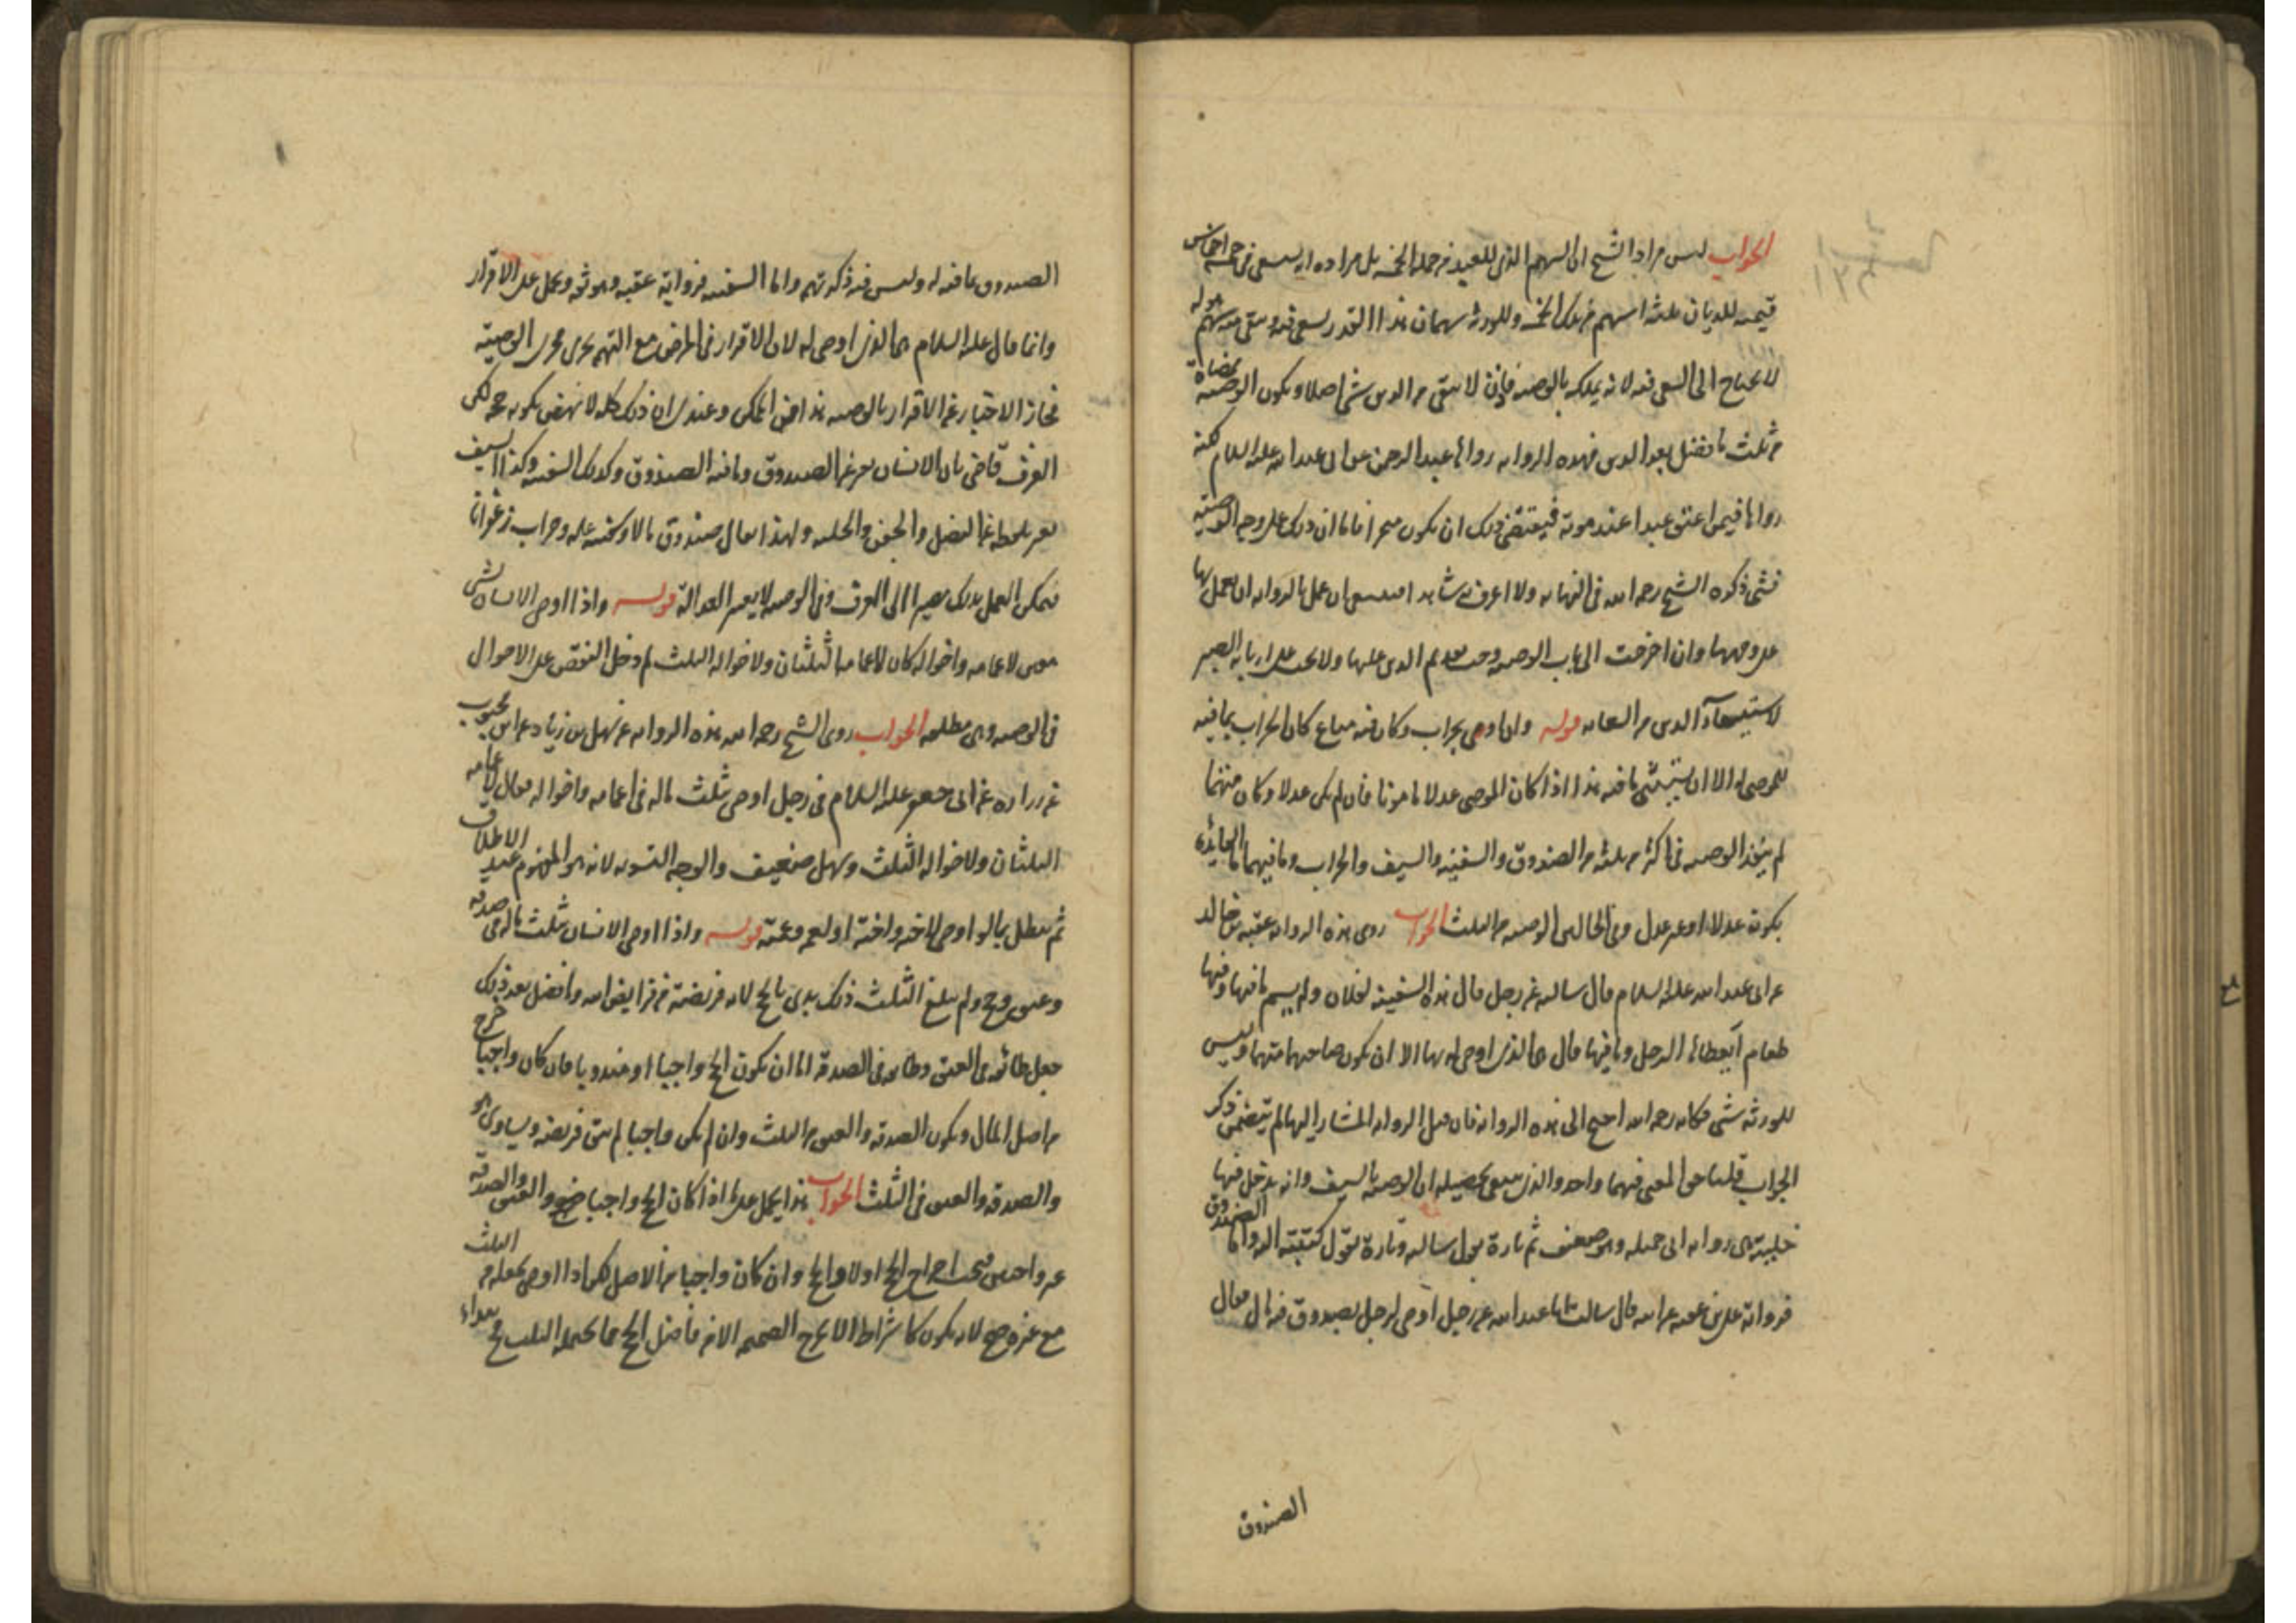 الجواب ليس مراد الشيخ ان السهم الذي للعبد من جملة الخمسة بل مراده انه يسعى في خمسة اخماس
قيمته للديان ثلثة اسهم من تلك الخمسة وللورثة سهمان هذا القدر يسعى فيه ويبقى منه سهم هو له
لا يحتاج الى السعى فيه لانه يملكه بالوصية فاذن لا يبقى من الدين شئ اصلا ويكون الوصية ممضاة
من ثلث ما يفضل بعد الدين فهذه الرواية رواها عبد الرحمن عن ابى عبد الله عليه السلام لكنه
رواها فيمن اعتق عبدا عند موته فيقتضى ذلك ان يكون منجزا فاما ان ذلك على وجه الوصية
فشئ ذكره الشيخ رحمه الله فى النهاية ولا اعرف به شاهدا فينبغي ان عمل بالرواية ان يعمل بها
على وجهها وان اخرجت الى باب الوصية وجب تقديم الدين عليها ولا يجب على اربابه الصبر
لاستيفاء الدين من السعاية قوله وان اوصى بجراب وكان فيه متاع كان الجراب بما فيه
للموصى له الا ان يستثنى ما فيه هذا اذا كان الموصى عدلا مامونا فان لم يكن عدلا وكان متهما
لم ينفذ الوصية فى اكثر من ثلثه من الصندوق والسفينة والسيف والجراب وما فيهما ما الفايدة
بكونه عدلا او غير عدل وفى الحالين الوصية من الثلث الجواب روى هذه الرواية عقبة بن خالد
عن ابى عبد الله عليه السلام قال سالته عن رجل قال هذه السفينة لفلان ولم يسم ما فيها وفيها
طعام ايعطاها الرجل وما فيها قال هى للذى اوصى له بها الا ان يكون صاحبها متهما وليس
للورثة شئ فكانه رحمه الله احتج الى هذه الرواية فان قيل الرواية المشار اليها لم يتضمن ذكر
الجراب قلنا المعنى فيهما واحد والذى ينبغى تحصيله ان الوصية بالسيف وانه يدخل فيها
حليته هى رواية ابى جميلة وهو ضعيف ثم تارة يقول سالته وتارة يقول كتبت اليه واما الصندوق
فرواية على بن عقبة عن ابيه قال سالت ابا عبد الله عن رجل اوصى لرجل بصندوق فيه مال فقال
الصندوق
الصندوق بما فيه له وليس فيه ذكر تهم واما السفينة فرواية عقبة وهو ثقة ويحمل على الاقرار
وانما قال عليه السلام هى للذى اوصى له لان الاقرار فى المرض مع التهم يجرى مجرى الوصية
فجاز الاخبار عن الاقرار بالوصية هذا اقصى الممكن وعندى ان ذلك كله لا ينهض بكونه حجة لكن
العرف قاض بان الانسان يعبر عن الصندوق وما فيه الصندوق وكذلك السفينة وكذا السيف
يعبر بلفظه عن النصل والجفن والحلية ولهذا يقال صندوق مال او كتب عليه وجراب زعفرانا
فيمكن العمل بذلك مصيرا الى العرف وفى الوصية لا يعتبر العدالة قوله واذا اوصى الانسان بشئ
معين لاعمامه واخواله كان لاعمامه الثلثان ولاخواله الثلث لم دخل النقص على الاخوال
فى الوصية وهى مطلقة الجواب روى الشيخ رحمه الله هذه الرواية عن سهل بن زياد عن ابن محبوب
عن زرارة عن ابى جعفر عليه السلام فى رجل اوصى بثلث ماله فى اعمامه واخواله فقال لاعمامه
الثلثان ولاخواله الثلث وسهل ضعيف والوجه التسوية لانه هو المفهوم عند الاطلاق
ثم يبطل بما لو اوصى لاخيه واخته او لعمه وعمته قوله واذا اوصى الانسان بثلث ماله فى صدقة
وعتق وحج ولم يبلغ الثلث ذلك بدئ بالحج لانه فريضة من فرايض الله وما فضل بعد ذلك
جعل طائفة فى العتق وطائفة فى الصدقة اما ان يكون الحج واجبا او مندوبا فان كان واجبا خرج
من اصل المال ويكون الصدقة والعتق من الثلث وان لم يكن واجبا لم يبق فريضة ويساوى هو
والصدقة والعتق فى الثلث الجواب هذا يحمل على اذا كان الحج واجبا والعتق والصدقة
غير واجبين فيجب اخراج الحج اولا والحج وان كان واجبا من الاصل لكن اذا اوصى بجعله من الثلث